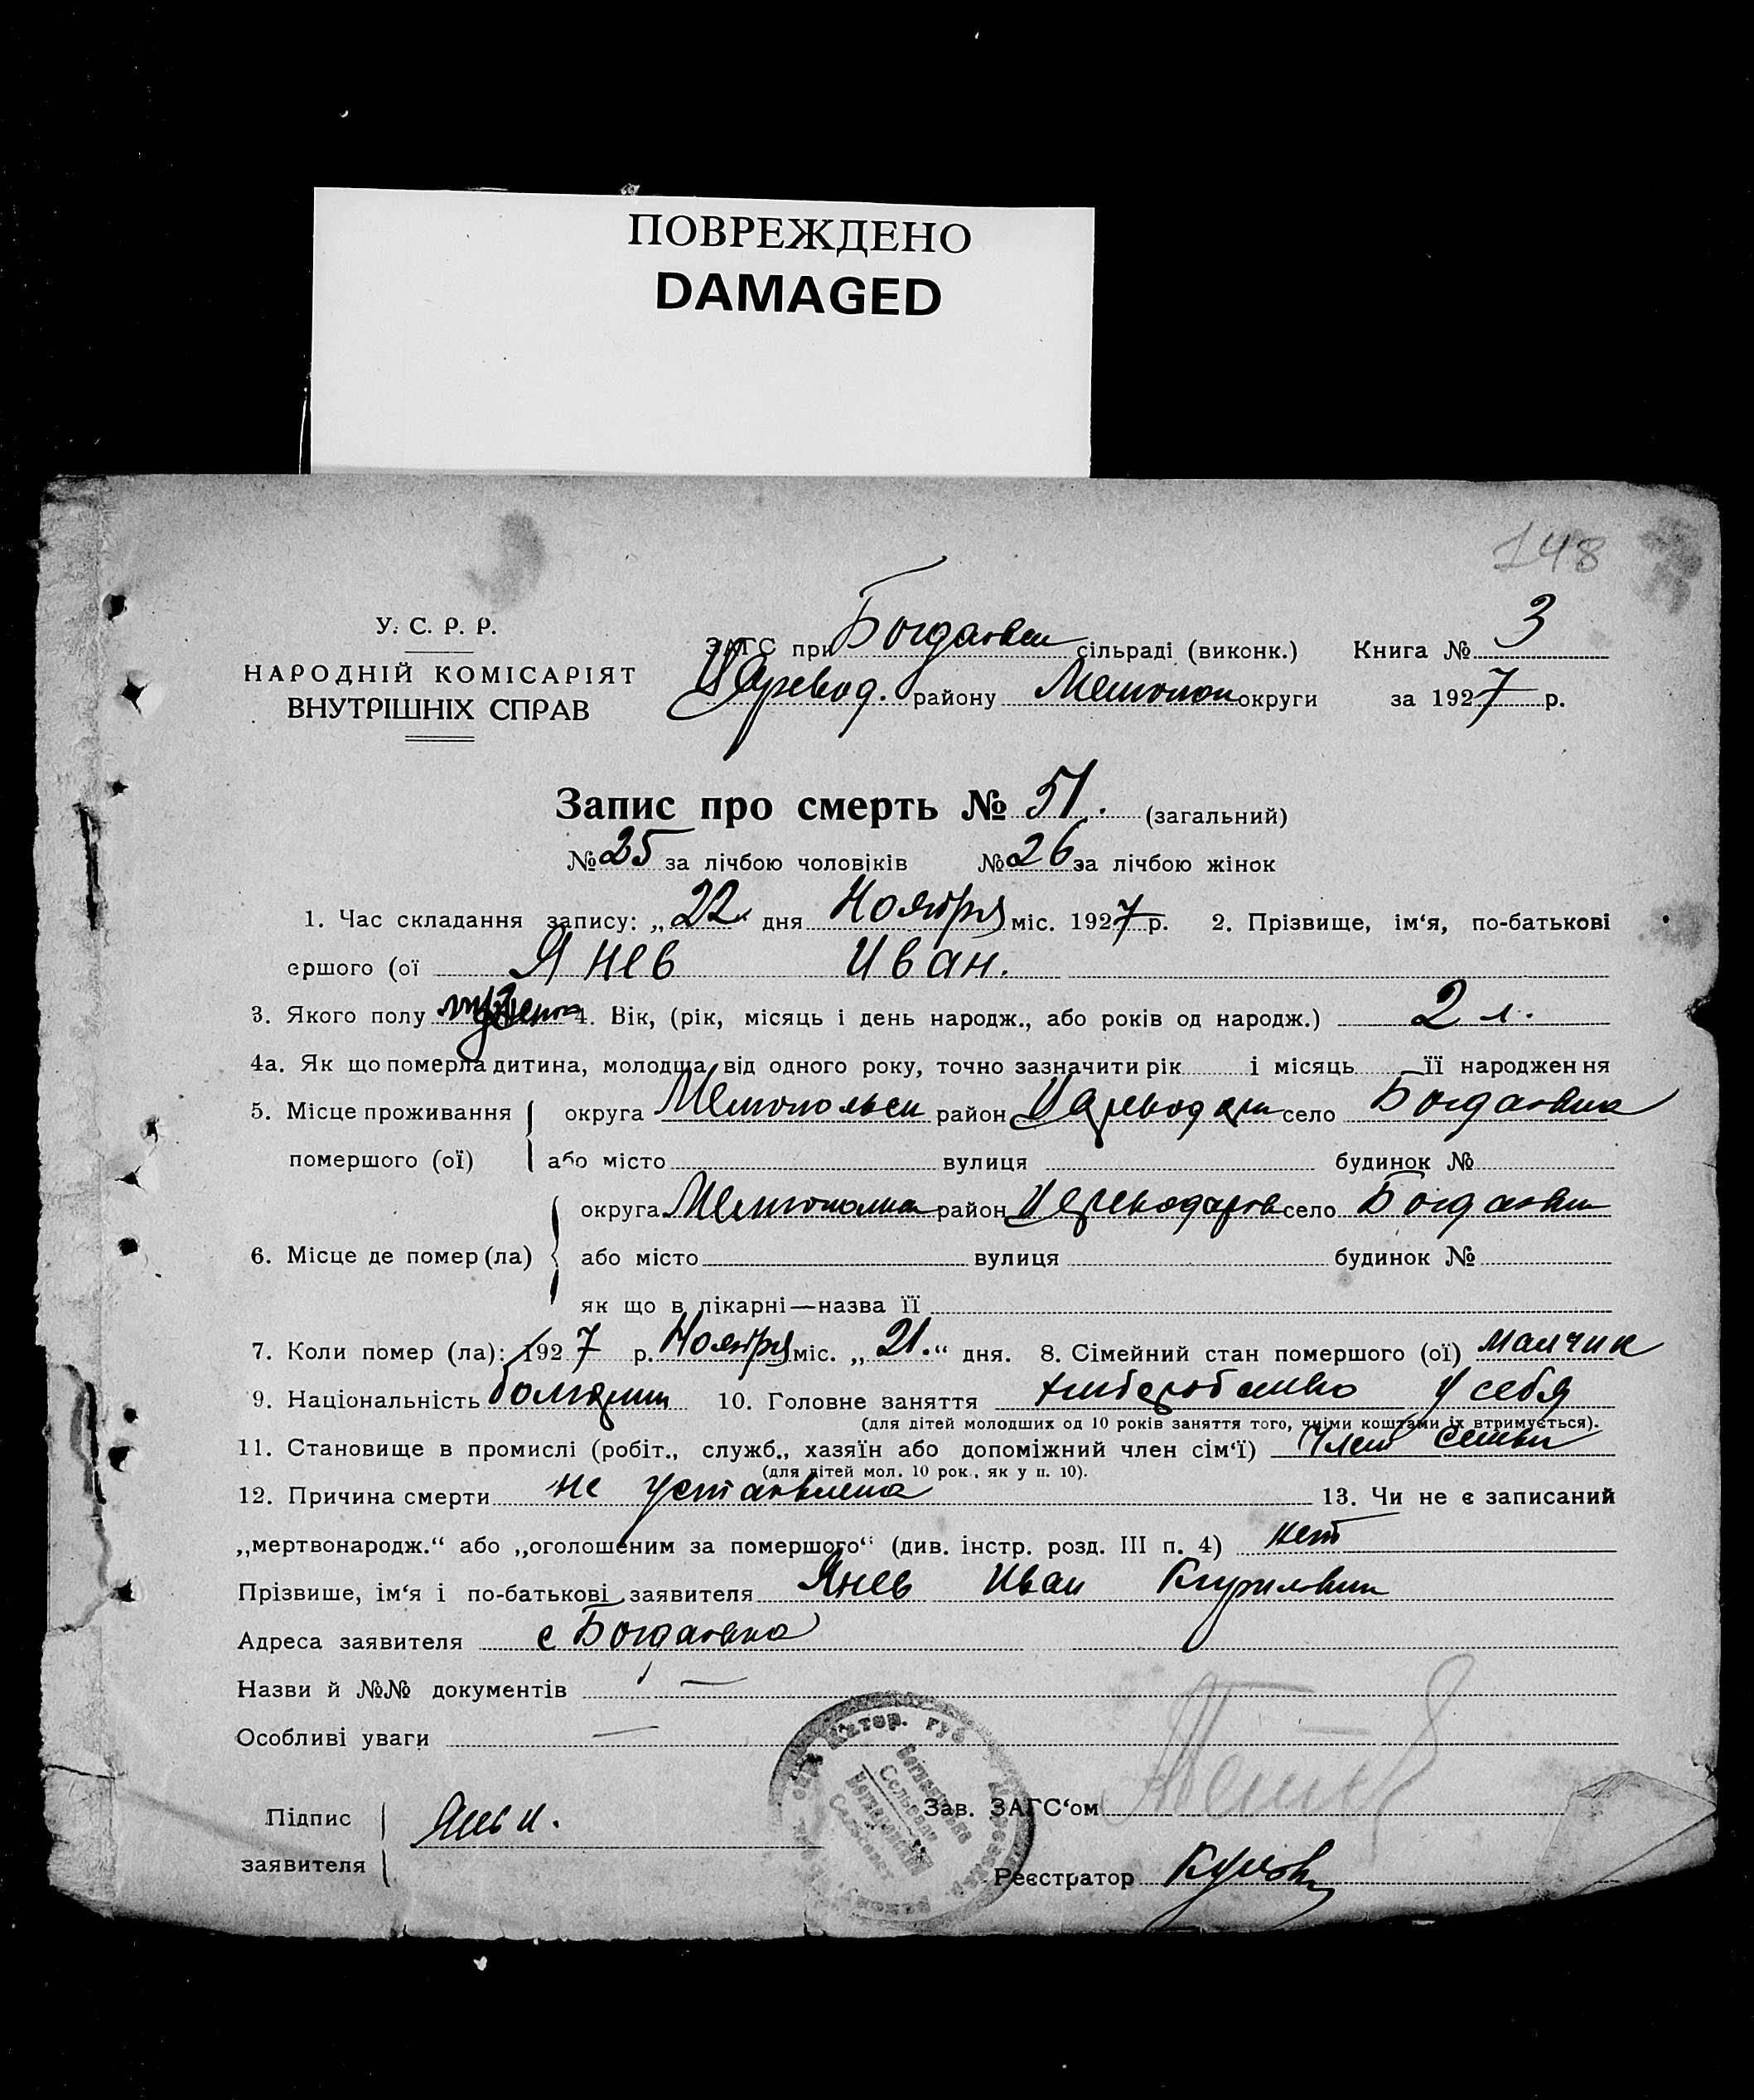 ПОВРЕЖДЕНО
DAMAGED
148
У. С. Р. Р.
НАРОДНІЙ КОМІСАРІЯТ
ВНУТРІШНІХ СПРАВ
ЗАГС при Богдановск сільраді (виконк.) Книга № 3
Царевод. району Мелитопол округи за 1927 р.
Запис про смерть № 51. (загальний)
№ 25 за лічбою чоловіків № 26 за лічбою жінок
1. Час складання запису: „22“ дня Ноября міс. 1927 р. 2. Прізвище, ім‘я, по-батькові
ершого (ої Янев Иван.
3. Якого полу 4. Вік, (рік, місяць і день народж., або років од народж.) 2 л.
4а. Як що померла дитина, молодша від одного року, точно зазначити рік і місяць її народження
5. Місце проживання округа Мелитопольск район село Богдановка
помершого (ої) або місто вулиця будинок №
округа район село Богдановк
6. Місце де помер (ла) або місто вулиця будинок №
як що в лікарні—назва її
7. Коли помер (ла): 1927 р. Ноября міс. „21.“ дня. 8. Сімейний стан помершого (ої) малчик
9. Національність болгарин 10. Головне заняття у себя
(для дітей молодших од 10 років заняття того, чиїми коштами їх втримується).
11. Становище в промислі (робіт., служб., хазяїн або допоміжний член сім‘ї) член семьи
(для дітей мол. 10 рок., як у п. 10).
12. Причина смерти не установлена 13. Чи не є записаний
„мертвонародж.“ або „оголошеним за помершого“ (див. інстр. розд. III п. 4) нет
Прізвише, ім‘я і по-батькові заявителя Янев Иван Кирилович
Адреса заявителя с Богдановка
Назви й №№ документів —
Особливі уваги —
Зав. ЗАГС‘ом
Підпис
заявителя
Реєстратор